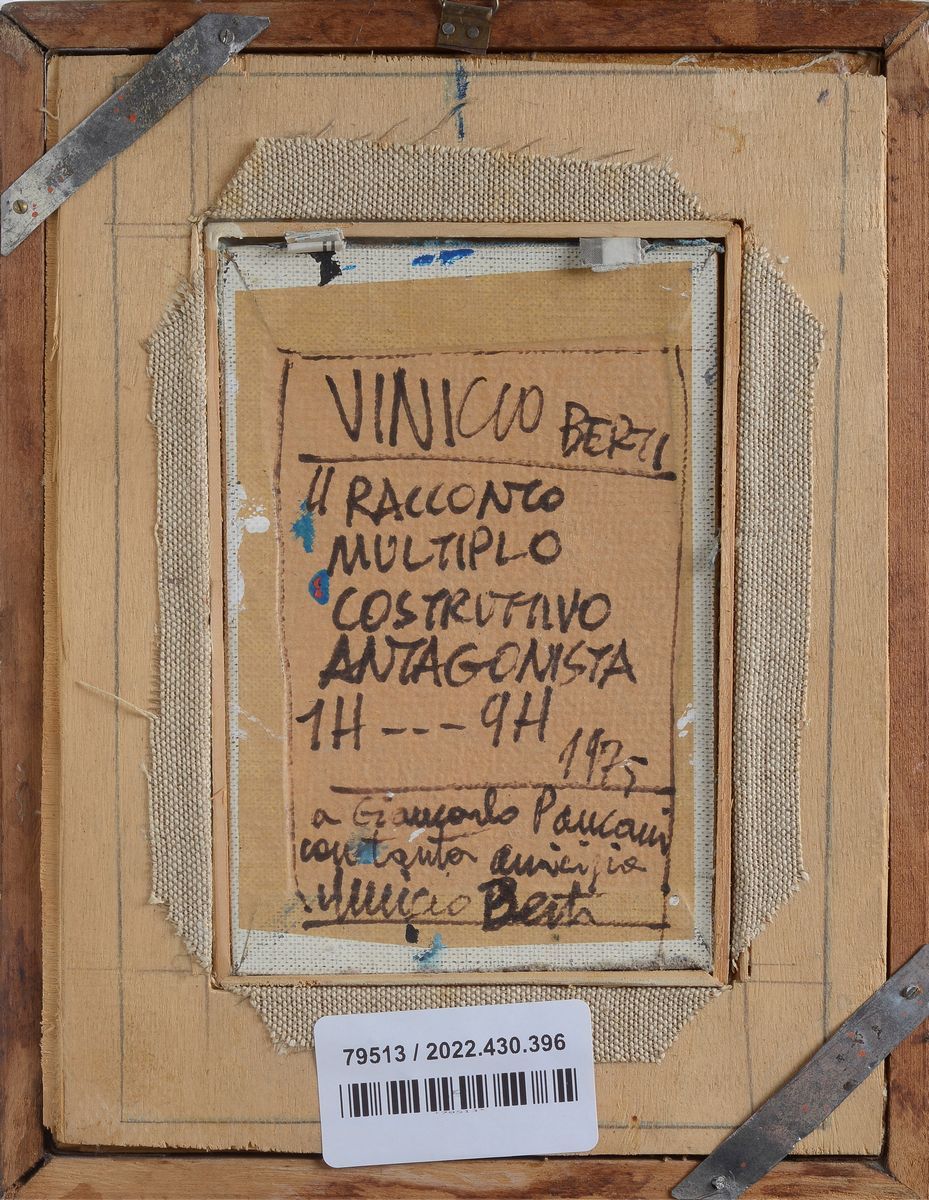 VINICIO BERTI
Il RACCONTO
MULTIPLO
COSTRUTTIVO
ANTAGONISTA
1H --- 9H
1975
a Giancarlo Pancani
con tanta amicizia
Vinicio Berti
79513 / 2022.430.396